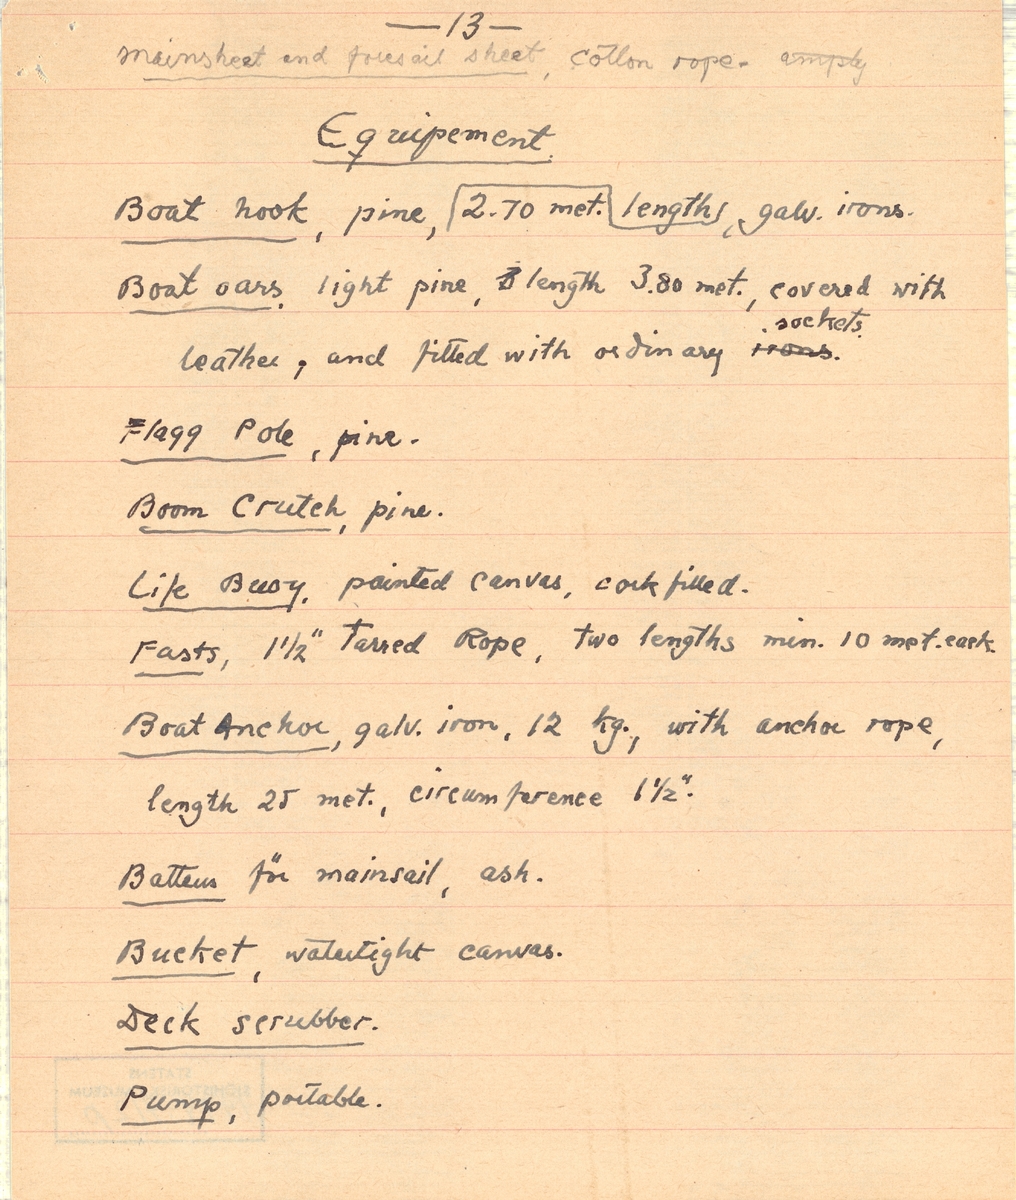 —13—
Mainsheet and foresail sheet, cotton rope. amply
Equipement.
Boat hook, pine, 2.70 met. length, galv. irons.
Boat oars, light pine, length 3.80 met., covered with
sockets.
leather, and fitted with ordinary irons.
Flagg Pole, pine.
Boom Crutch, pine.
Life Buoy, painted canvas, cork filled.
Fasts, 1½" Tarred Rope, two lengths min. 10 met. each.
Boat Anchor, galv. iron, 12 kg., with anchor rope,
length 25 met., circumference 1½".
Battens för mainsail, ash.
Bucket, watertight canvas.
Deck scrubber.
Pump, portable.
STATENS
SJÖHISTORISKA MUSEUM